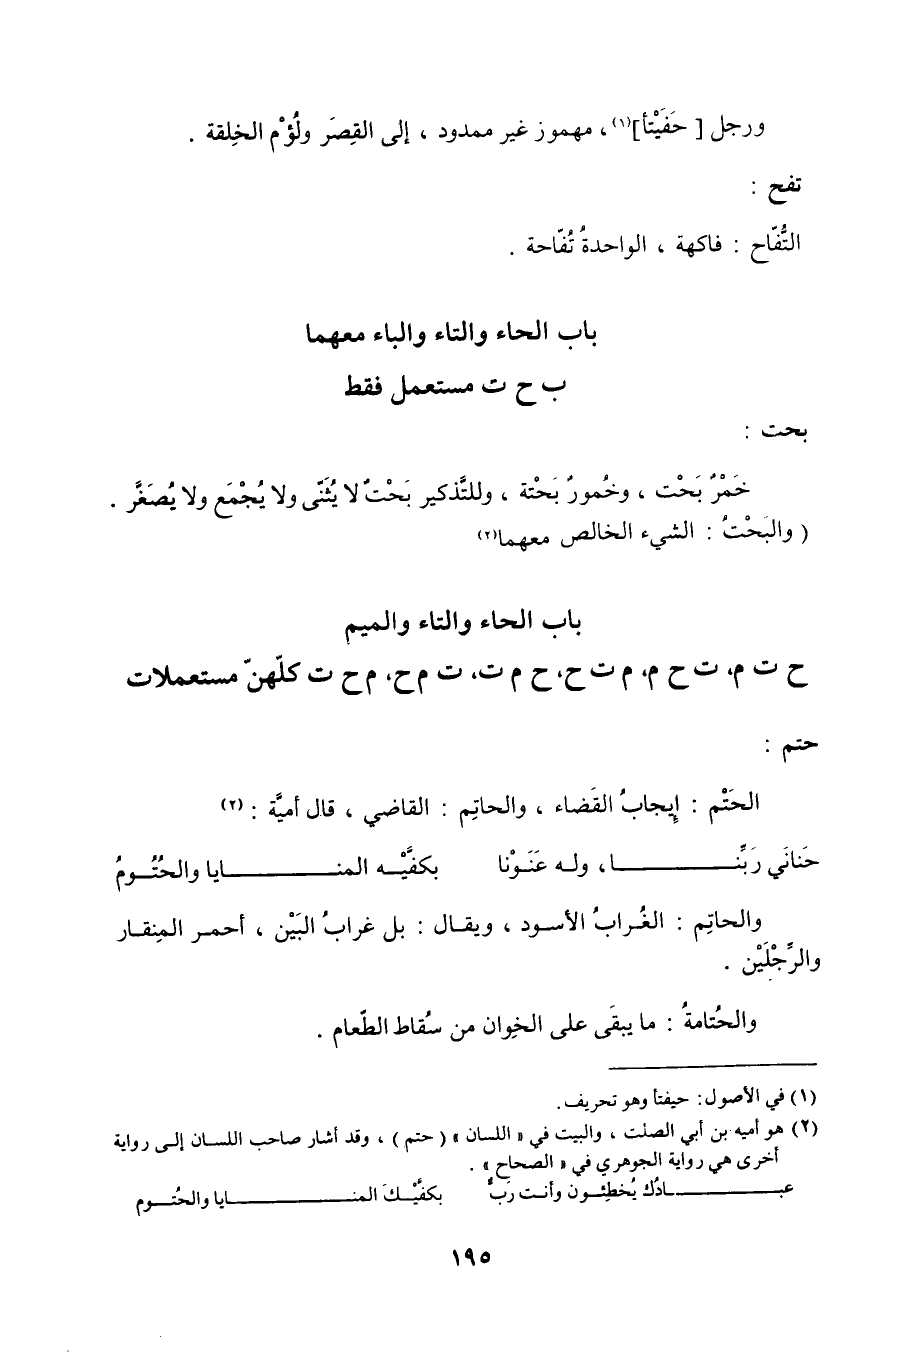 ورجل [ حَفَيْتَأ](١)، مهموز غير ممدود ، إلى القِصَر ولُؤْم الخِلقة .
تفح :
التُّفّاح : فاكهة ، الواحدةُ تُفّاحة .
باب الحاء والتاء والباء معهما
ب ح ت مستعمل فقط
بحت :
خَمْرٌ بَحْت ، وخُمورٌ بَحْتة ، وللتَّذكير بَحْتٌ لا يُثَنّى ولا يُجْمَع ولا يُصَغَّر .
( والبَحْتُ : الشيء الخالص معهما(٢)
باب الحاء والتاء والميم
ح ت م، ت ح م، م ت ح، ح م ت، ت م ح، م ح ت كلّهنّ مستعملات
حتم :
الحَتْم : إيجابُ القَضاء ، والحاتِم : القاضي ، قال أميَّة : (٢)
حَنانَي رَبِّنـــا، ولـه عَنَـوْنا بكفَّيْـه المنـــايا والحُتُـومُ
والحاتِم : الغُرابُ الأسود ، ويقـال : بل غرابُ البَيْن ، أحمـر المِنقـار
والرِّجْلَيْن .
والحُتامةُ : ما يبقَى على الخِوان من سُقاط الطّعام .
(١) في الأصول: حيفتأ وهو تحريف.
(٢) هو أميه بن أبي الصلت ، والبيت في « اللسان » ( حتم ) ، وقد أشار صاحب اللسان إلى رواية
أخرى هي رواية الجوهري في « الصحاح » .
عبـــادُك يُخطِئـون وأنـت رَبٌّ بكفَّيْـكَ المنـــايا والحُتُـوم
١٩٥